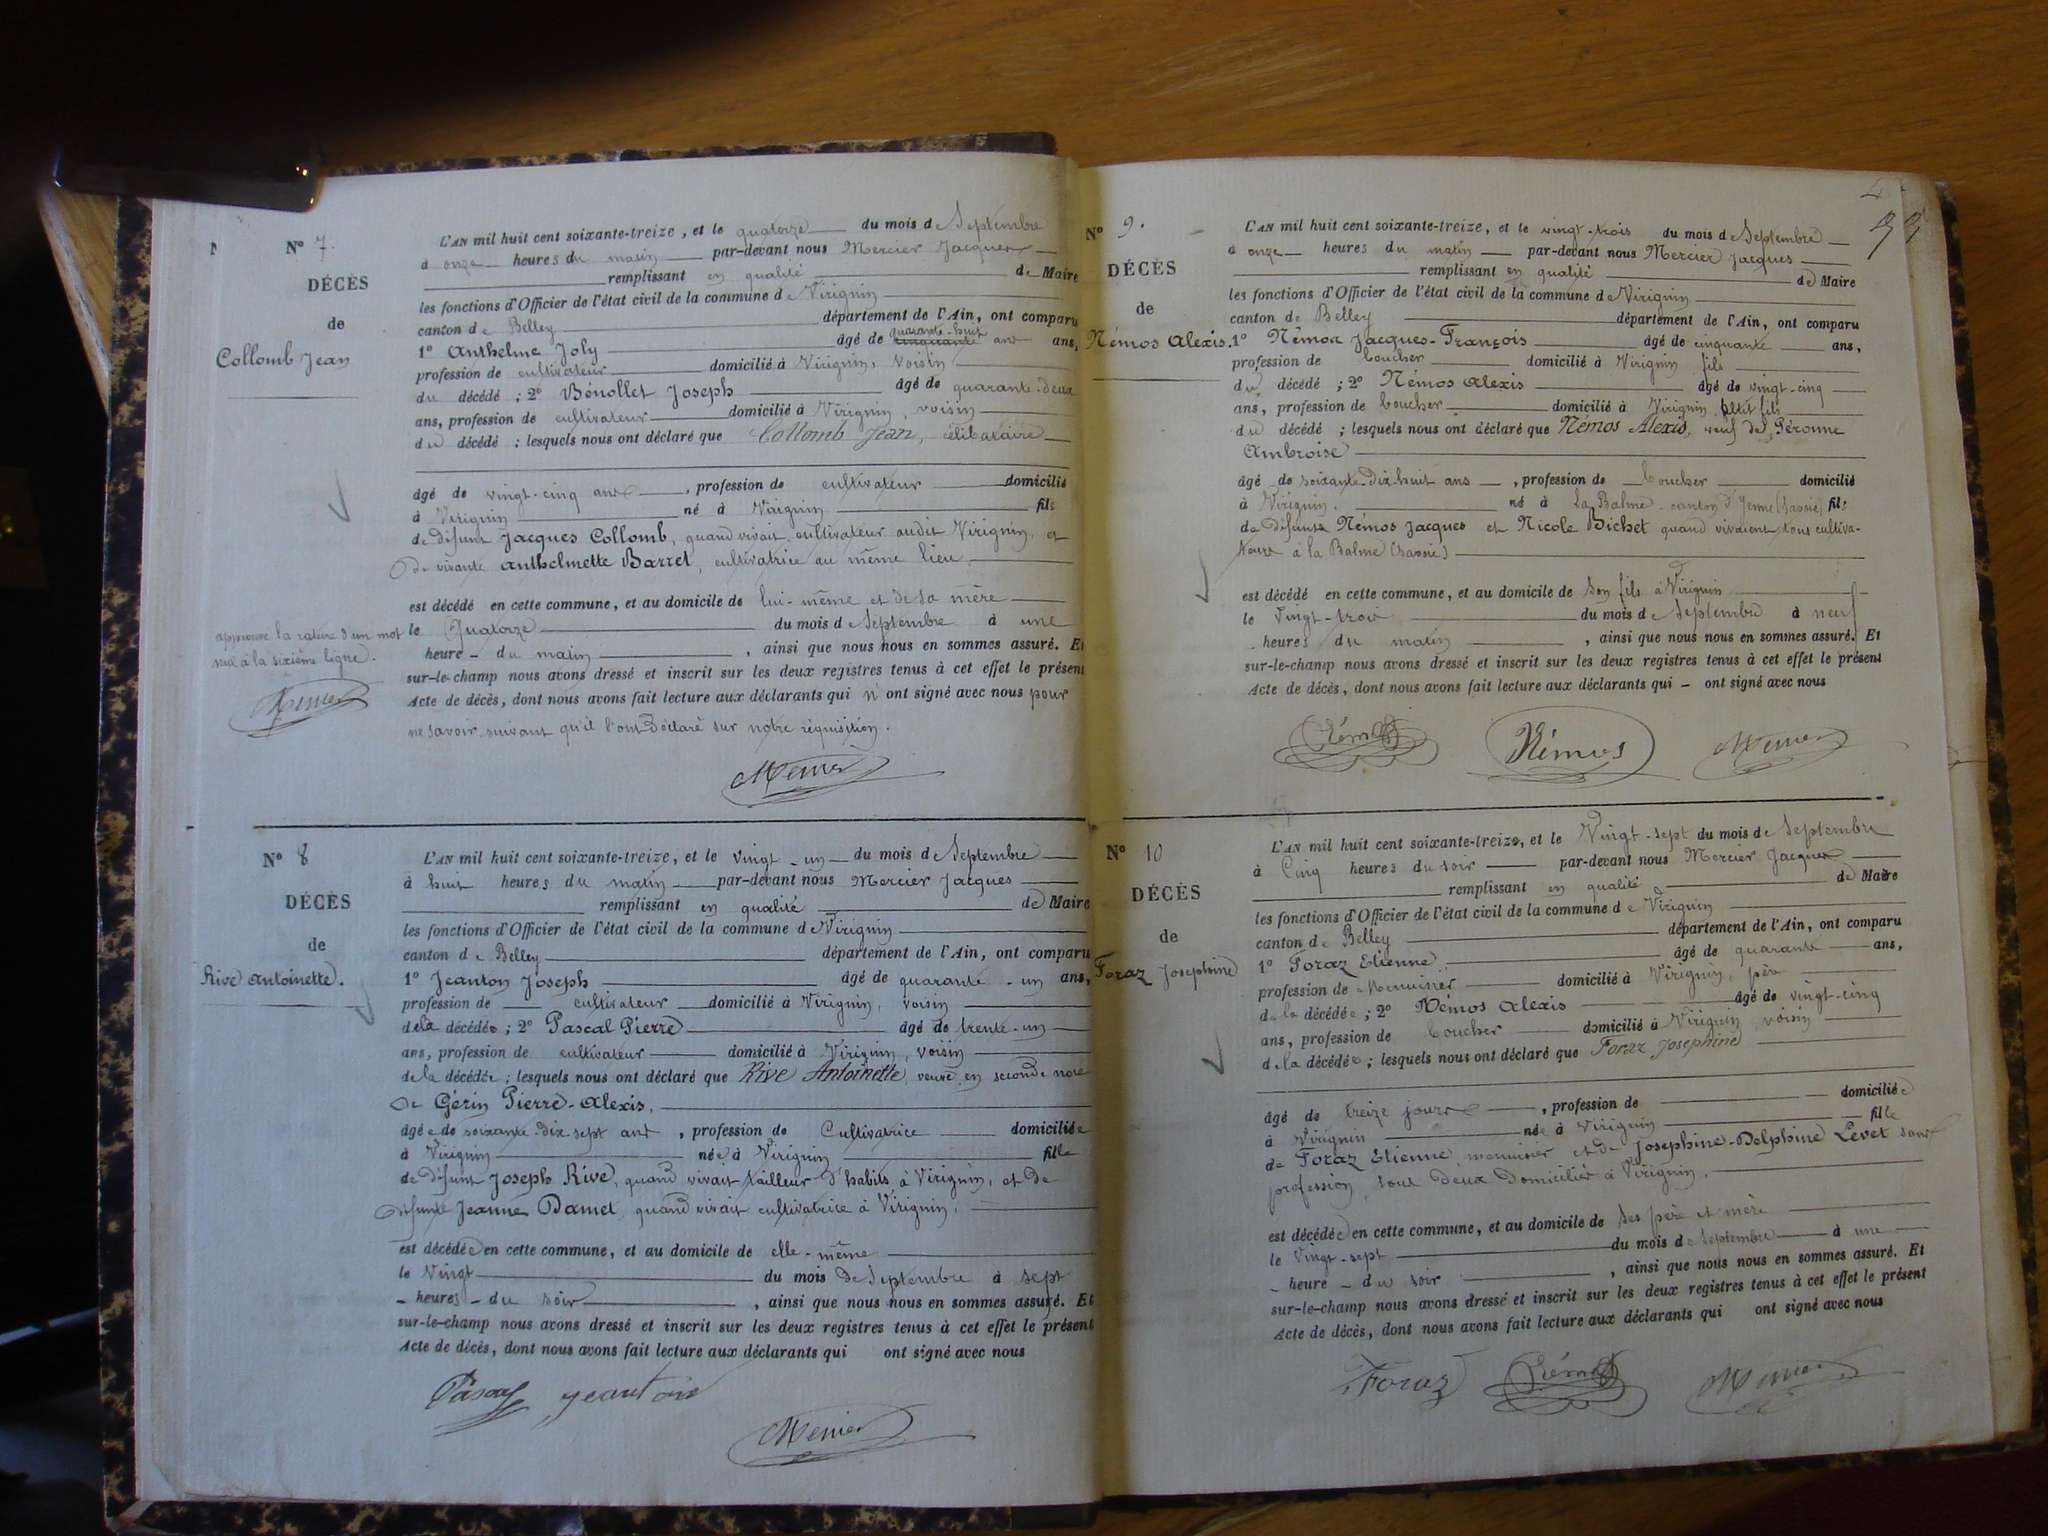 N° 7.
DÉCÈS
de
Collomb Jean
L'AN mil huit cent soixante-treize, et le quatorze du mois de Septembre
à onze heures du matin par-devant nous Mercier Jacques
remplissant en qualité de Maire
les fonctions d'Officier de l'état civil de la commune de Virignin
canton de Belley département de l'Ain, ont comparu
1° Anthelme Joly âgé de cinquante quarante-huit ans ans,
profession de cultivateur domicilié à Virignin, voisin
du décédé ; 2° Bénollet Joseph âgé de quarante-deux
ans, profession de cultivateur domicilié à Virignin, voisin
du décédé ; lesquels nous ont déclaré que Collomb Jean, célibataire
âgé de vingt-cinq ans, profession de cultivateur domicilié
à Virignin né à Virignin fils
de défunt Jacques Collomb, quand vivait cultivateur audit Virignin, et
de vivante Anthelmette Barret, cultivatrice au même lieu.
est décédé en cette commune, et au domicile de lui-même et de sa mère
le Quatorze du mois de Septembre à une
heure du matin, ainsi que nous nous en sommes assuré. Et
sur-le-champ nous avons dressé et inscrit sur les deux registres tenus à cet effet le présent
Acte de décès, dont nous avons fait lecture aux déclarants qui n'ont signé avec nous pour
ne savoir suivant qu'il l'ont déclaré sur notre réquisition.
approuvé la rature d'un mot
nul à la sixième ligne.
Mercier
Mercier
N° 8
DÉCÈS
de
Rive Antoinette.
L'AN mil huit cent soixante-treize, et le vingt-un du mois de Septembre
à huit heures du matin par-devant nous Mercier Jacques
remplissant en qualité de Maire
les fonctions d'Officier de l'état civil de la commune de Virignin
canton de Belley département de l'Ain, ont comparu
1° Jeanton Joseph âgé de quarante-un ans,
profession de cultivateur domicilié à Virignin, voisin
de la décédée ; 2° Pascal Pierre âgé de trente-un
ans, profession de cultivateur domicilié à Virignin, voisin
de la décédée ; lesquels nous ont déclaré que Rive Antoinette, veuve en seconde noce
de Gérin Pierre-Alexis,
âgée de soixante-dix-sept ans, profession de Cultivatrice domiciliée
à Virignin née à Virignin fille
de défunt Joseph Rive, quand vivait tailleur d'habits à Virignin, et de
défunte Jeanne Damet, quand vivait cultivatrice à Virignin.
est décédée en cette commune, et au domicile de elle-même
le Vingt du mois de Septembre à sept
heures du soir, ainsi que nous nous en sommes assuré. Et
sur-le-champ nous avons dressé et inscrit sur les deux registres tenus à cet effet le présent
Acte de décès, dont nous avons fait lecture aux déclarants qui ont signé avec nous
Pascal Jeanton
Mercier
N° 9.
DÉCÈS
de
Némos Alexis.
L'AN mil huit cent soixante-treize, et le vingt-trois du mois de Septembre
à onze heures du matin par-devant nous Mercier Jacques
remplissant en qualité de Maire
les fonctions d'Officier de l'état civil de la commune de Virignin
canton de Belley département de l'Ain, ont comparu
1° Némos Jacques-François âgé de cinquante ans,
profession de boucher domicilié à Virignin fils
du décédé ; 2° Némos Alexis âgé de vingt-cinq
ans, profession de boucher domicilié à Virignin, petit fils
du décédé ; lesquels nous ont déclaré que Némos Alexis, veuf de Péronne
Ambroise
âgé de soixante-dix-huit ans, profession de boucher domicilié
à Virignin. né à La Balme canton d'Yenne (Savoie) fils
de défunts Némos Jacques et Nicole Bichet quand vivaient tous cultiva-
teurs à la Balme (Savoie)
est décédé en cette commune, et au domicile de son fils à Virignin
le Vingt-trois du mois de Septembre à neuf
heures du matin, ainsi que nous nous en sommes assuré. Et
sur-le-champ nous avons dressé et inscrit sur les deux registres tenus à cet effet le présent
Acte de décès, dont nous avons fait lecture aux déclarants qui ont signé avec nous
Némos Némos Mercier
N° 10
DÉCÈS
de
Foraz Josephine
L'AN mil huit cent soixante-treize, et le Vingt-sept du mois de Septembre
à Cinq heures du soir par-devant nous Mercier Jacques
remplissant en qualité de Maire
les fonctions d'Officier de l'état civil de la commune de Virignin
canton de Belley département de l'Ain, ont comparu
1° Foraz Etienne, âgé de quarante ans,
profession de Menuisier domicilié à Virignin, père
de la décédée ; 2° Némos Alexis âgé de vingt-cinq
ans, profession de boucher domicilié à Virignin, voisin
de la décédée ; lesquels nous ont déclaré que Foraz Josephine
âgé de treize jours, profession de domiciliée
à Virignin née à Virignin fille
de Foraz Etienne, menuisier et de Josephine-Delphine Levet sans
profession, tous deux domiciliés à Virignin.
est décédée en cette commune, et au domicile de ses père et mère
le Vingt-sept du mois de Septembre à une
heure du soir, ainsi que nous nous en sommes assuré. Et
sur-le-champ nous avons dressé et inscrit sur les deux registres tenus à cet effet le présent
Acte de décès, dont nous avons fait lecture aux déclarants qui ont signé avec nous
Foraz Némos Mercier